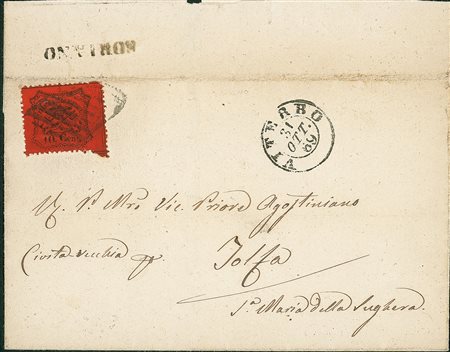 SORIANO
10 Cent
VITERBO
31
OTT.
69
M. Pº Mro Vic. Priore Agostiniano
Civita Vecchia
Tolfa
Sª. Maria della Sughera.